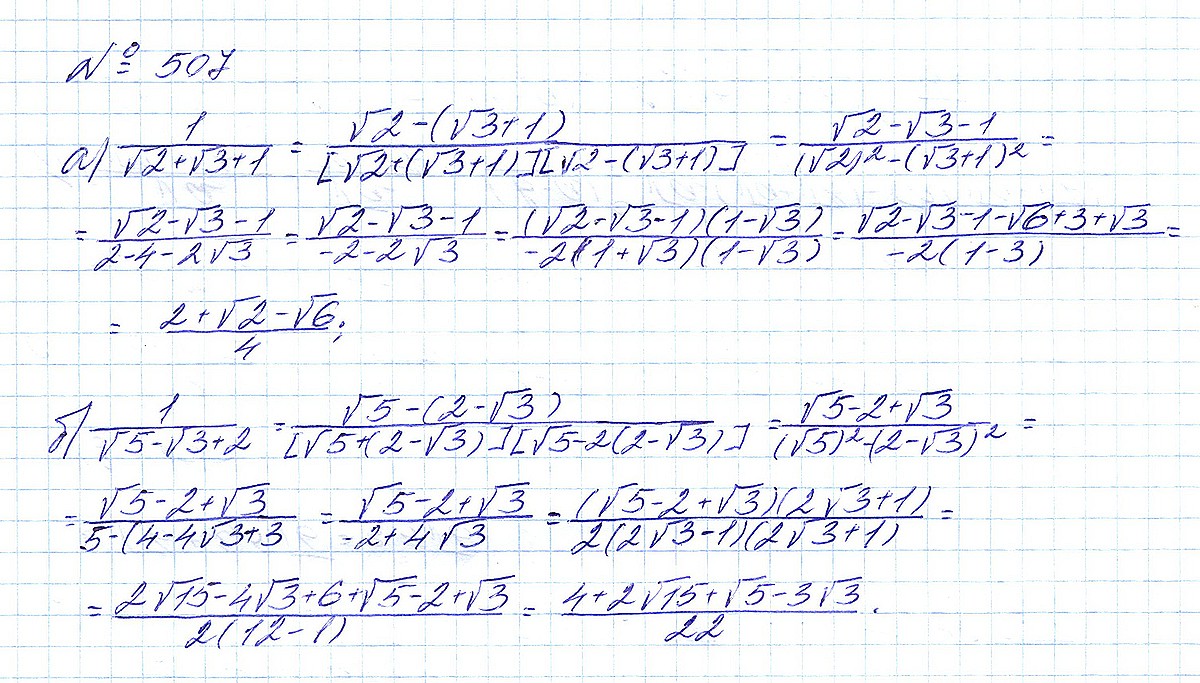 № 507
а) 1/(√2+√3+1) = (√2-(√3+1))/([√2+(√3+1)][√2-(√3+1)]) = (√2-√3-1)/((√2)²-(√3+1)²) =
= (√2-√3-1)/(2-4-2√3) = (√2-√3-1)/(-2-2√3) = ((√2-√3-1)(1-√3))/(-2(1+√3)(1-√3)) = (√2-√3-1-√6+3+√3)/(-2(1-3)) =
= (2+√2-√6)/4;
б) 1/(√5-√3+2) = (√5-(2-√3))/([√5+(2-√3)][√5-2(2-√3)]) = (√5-2+√3)/((√5)²-(2-√3)²) =
= (√5-2+√3)/(5-(4-4√3+3) = (√5-2+√3)/(-2+4√3) = ((√5-2+√3)(2√3+1))/(2(2√3-1)(2√3+1)) =
= (2√15-4√3+6+√5-2+√3)/(2(12-1)) = (4+2√15+√5-3√3)/22.